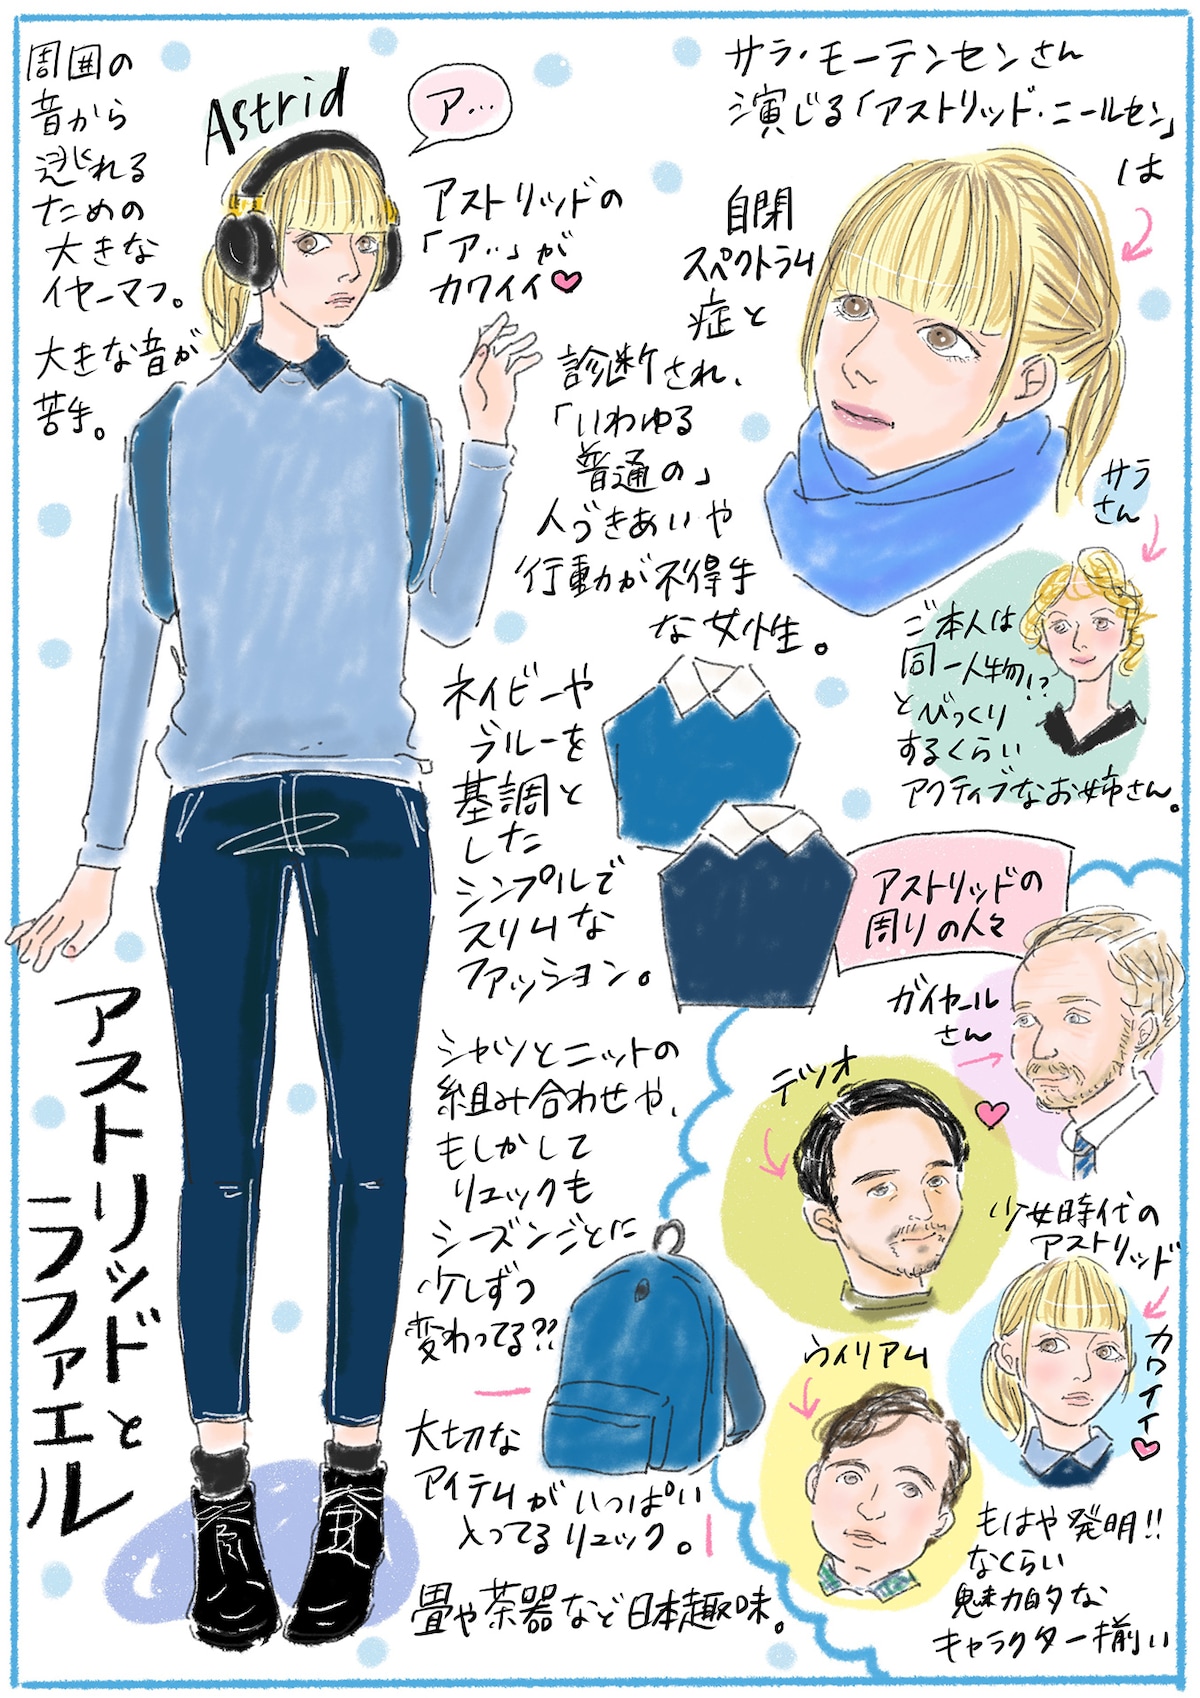 周囲の
音から
逃れる
ための
大きな
イヤーマフ。
大きな音が
苦手。
Astrid
ア…
アストリッドの
「ア…」が
カワイイ
サラ・モーテンセンさん
演じる「アストリッド・ニールセン」
は
自閉
スペクトラム
症と
診断され、
「いわゆる
普通の」
人づきあいや
行動が不得手
な女性。
サラ
さん
ご本人は
同一人物!?
とびっくり
するくらい
アクティブなお姉さん。
ネイビーや
ブルーを
基調と
した
シンプルで
スリムな
ファッション。
シャツとニットの
組み合わせや、
もしかして
リュックも
シーズンごとに
少しずつ
変わってる??
大切な
アイテムがいっぱい
入ってるリュック。
畳や茶器など日本趣味。
アストリッドと
ラファエル
アストリッドの
周りの人々
ガイヤール
さん
テツオ
少女時代の
アストリッド
カワイイ
ウィリアム
もはや発明!!
なくらい
魅力的な
キャラクター揃い